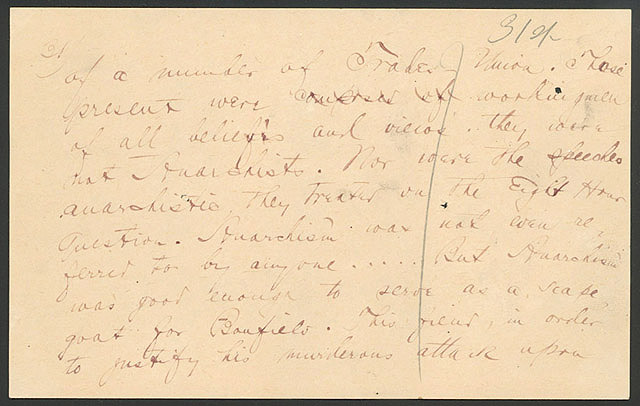 314
2)
of a number of Trades Union. Those
present were composed of workingmen
of all beliefs and views. they were
not Anarchists. Nor were the speeches
anarchistic they treated on the Eight Hour
Question. Anarchism was not even re-
ferred to by anyone ..... But Anarchism
was good enough to serve as a scape
goat for Bonfield. This fiend, in order
to justify his murderous attack upon